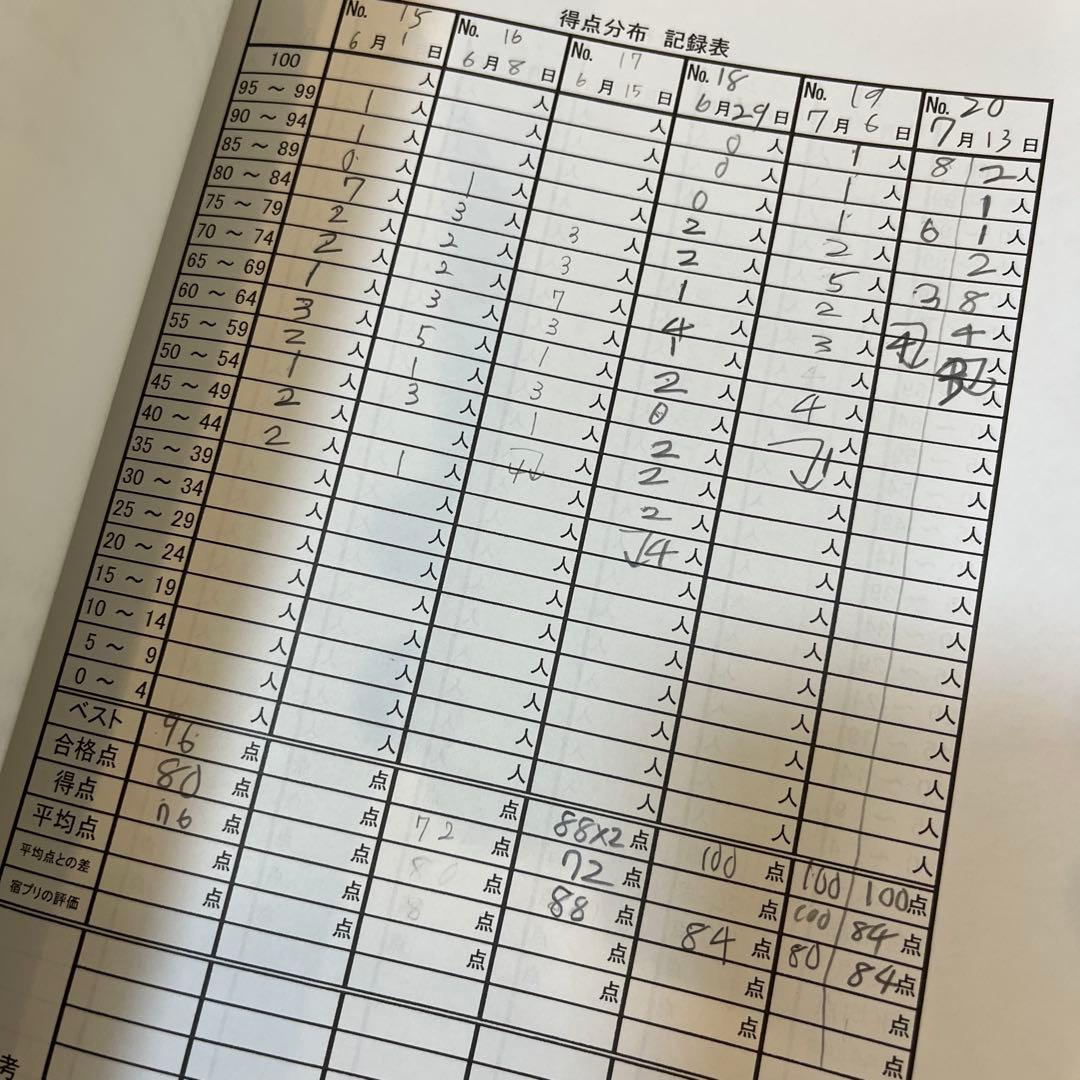 得点分布 記録表
No. 15 No. 16 No. 17 No. 18 No. 19 No. 20
6月1日 6月8日 6月15日 6月29日 7月6日 7月13日
100 人 人 人 0人 1人 8 2人
95 ～ 99 1人 人 人 0人 1人 1人
90 ～ 94 1人 人 人 0人 1人 6 1人
85 ～ 89 0人 1人 人 2人 2人 2人
80 ～ 84 7人 3人 3人 2人 5人 3 8人
75 ～ 79 2人 2人 3人 1人 2人 4人
70 ～ 74 2人 2人 7人 4人 3人 人
65 ～ 69 1人 3人 3人 1人 4人 人
60 ～ 64 3人 5人 1人 2人 4人 人
55 ～ 59 2人 1人 3人 0人 1人 人
50 ～ 54 1人 3人 1人 2人 人 人
45 ～ 49 2人 人 人 2人 人 人
40 ～ 44 2人 1人 人 2人 人 人
35 ～ 39 人 人 人 4人 人 人
30 ～ 34 人 人 人 人 人 人
25 ～ 29 人 人 人 人 人 人
20 ～ 24 人 人 人 人 人 人
15 ～ 19 人 人 人 人 人 人
10 ～ 14 人 人 人 人 人 人
5 ～ 9 人 人 人 人 人 人
0 ～ 4 人 人 人 人 人 人
ベスト 96点 点 点 88×2点 100点 100 100点
合格点 80点 点 72点 72点 点 100 84点
得点 点 点 80点 88点 84点 80 84点
平均点 点 点 点 点 点 点
平均点との差 点 点 点 点 点 点
宿プリの評価
考